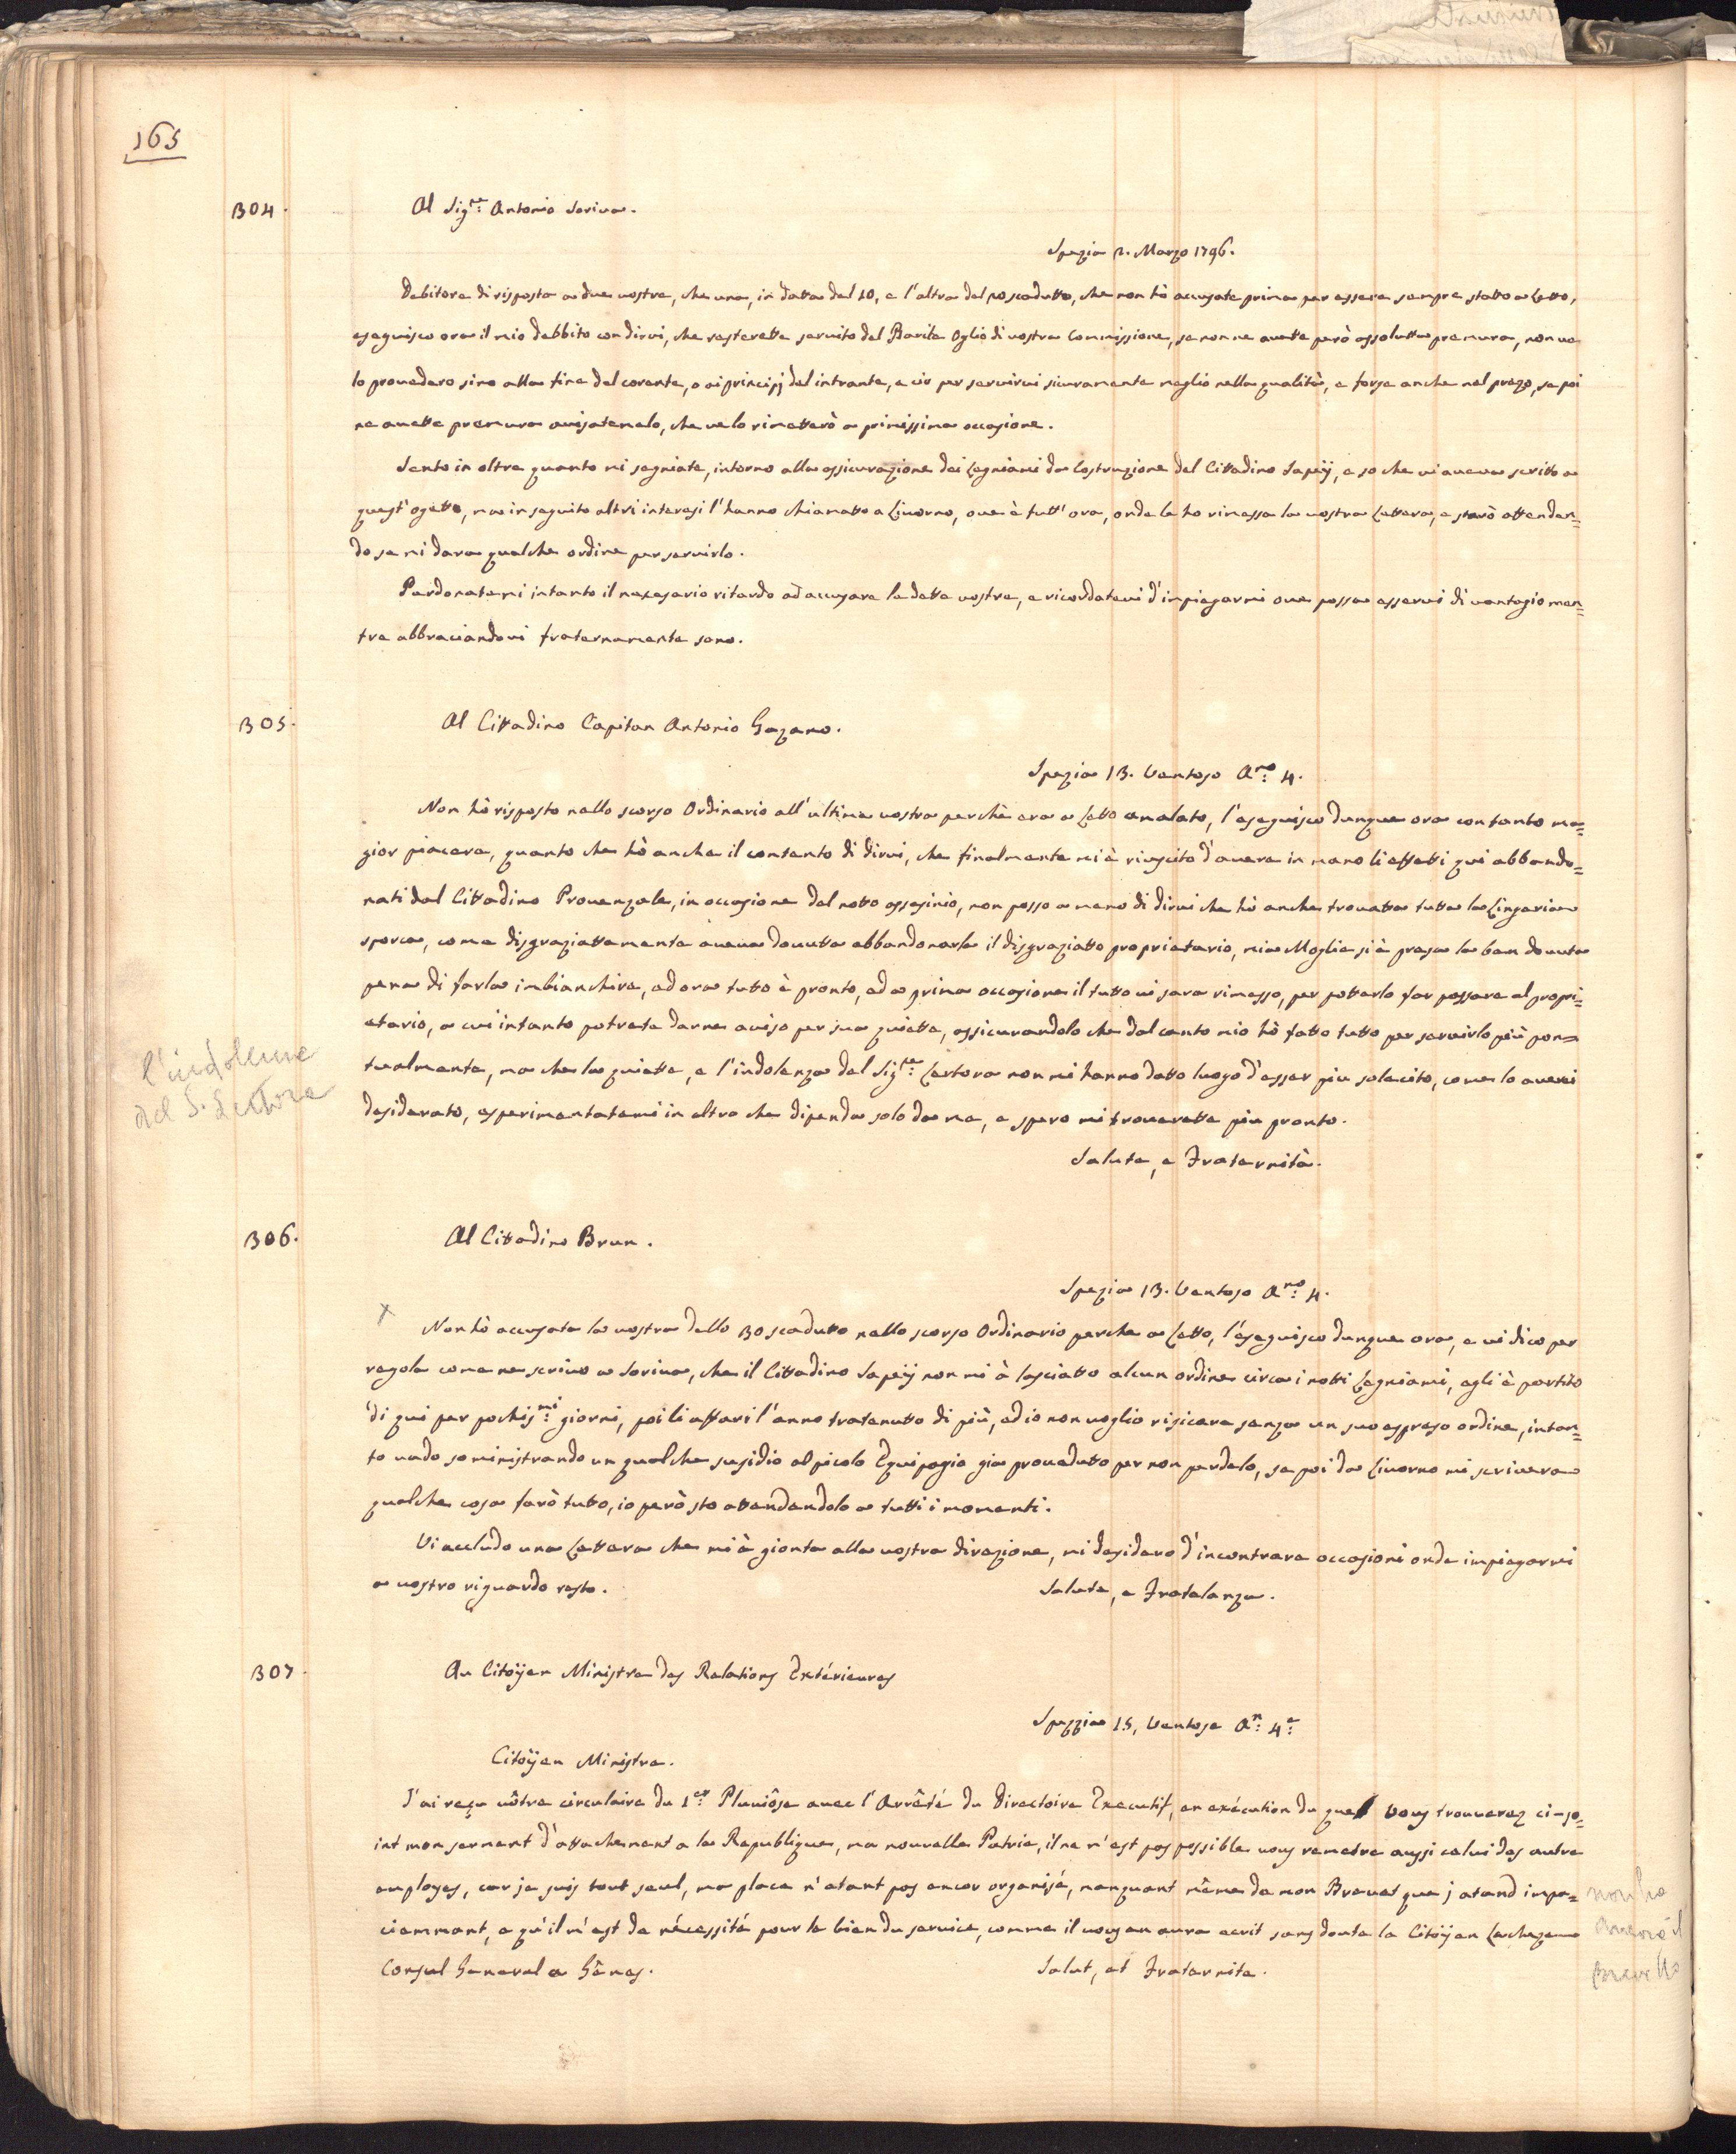 165
304.
Al Sig.re Antonio Soriva.
Spezia 2. Marzo 1796.
Debitore di risposta a due vostre, che una, in datta del 10, e l'altra del 20 scadutto, che non hò accusate prima per essere sempre statto a Letto,
eseguisco ora il mio debbito con dirvi, che resterette servito del Barile Oglio di vostra Commissione, se non ne avette però assolutta premura, non ve
lo provedero sino alla fine del corente, o ai principj del intrante, e ciò per servirvi sicuramente meglio nella qualità, e forse anche nel prezo, se poi
ne avette premura avisatemelo, che ve lo rimetterò a primissima occasione.
Sento in oltre quanto mi segniate, intorno alla assicurazione dei Legniami da Costruzione del Cittadino Sapeij, e so che vi aveva scritto a
quest'ogetto, ma in seguito altri interesi l'hanno chiamatto a Livorno, ove è tutt'ora, onde le ho rimessa la vostra Lettera, e starò attenden=
do se mi dara qualche ordine per servirlo.
Perdonatemi intanto il necesario ritardo ad accusare le dette vostre, e ricordatevi d'impiegarmi ove possa esservi di vantagio men=
tre abbraciandovi fraternamente sono.
305.
Al Cittadino Capitan Antonio Gazano.
Spezia 13. Ventoso A.no 4.
Non hò risposto nello scorso Ordinario all'ultima vostra perchè era a Letto amalato, l'eseguisco dunque ora con tanto ma=
gior piacere, quanto che hò anche il contento di dirvi, che finalmente mi è riuscito d'avere in mano li effetti qui abbando=
nati dal Cittadino Provenzale, in occasione del notto assasinio, non posso a meno di dirvi che hò anche trovatta tutta la Lingeria
sporca, come disgraziattamente aveva dovutta abbandonarla il disgraziatto proprietario, mia Moglie si è presa la ben dovuta
pena di farla imbianchire, ed ora tutto è pronto, ed a prima occasione il tutto vi sara rimesso, per potterlo far passare al propri=
etario, a cui intanto potrete darne aviso per sua quiette, assicurandolo che dal canto mio hò fatto tutto per servirlo più pon=
tualmente, ma che la quiette, e l'indolenza del Sig.re Lertora non mi hanno datto luogo d'esser piu solecito, come lo averei
desiderato, esperimentatemi in altro che dipenda solo da me, e spero mi troverette piu pronto.
Salute, e Fraternità.
l'indolenza
del S. Lertora
306.
Al Cittadino Brun.
Spezia 13. Ventoso A.no 4.
x
Non hò accusata la vostra dello 30 scadutto nello scorso Ordinario perche a Letto, l'eseguisco dunque ora, e vi dico per
regola come ne scrivo a Soriva, che il Cittadino Sapeij non mi à lasciatto alcun ordine circa i notti Legniami, egli è partito
di qui per pochis.mi giorni, poi li affari l'anno tratenutto di più, ed io non voglio risicare senza un suo espreso ordine, intan=
to vado sominis­trando un qualche susidio al picolo Equipagio gia provedutto per non perdelo, se poi da Livorno mi scrivera
qualche cosa farò tutto, io però sto attendendolo a tutti i momenti.
Vi accludo una Lettera che mi è gionta alla vostra direzione, mi desidero d'incontrare occasioni onde impiegarmi
a vostro riguardo resto.
Salute, e Fratelanza.
307
Au Citoÿen Ministre des Relations Extérieures
Spezzia 15, Ventose A.n 4.e
Citoÿen Ministre.
J'ai reçu vôtre circulaire du 1.er Pluviôse avec l'Arrêté du Directoire Executif, en exécution du quel vous trouverez ci-jo=
int mon serment d'attachement a la Republique, ma nouvelle Patrie, il ne m'est pas possible vous remetre aussi celui des autre
employes, car je suis tout seul, ma place n'etant pas encor organisé, manquant même de mon Brevet que j atend impa=
ciemmant, e qu'il m'est de nécessité pour le bien du service, comme il vous en aura ecrit sans doute le Citoÿen Lacheze
Consul General a Gênes.
Salut, et Fraternite.
non ha
ancora il
brevetto